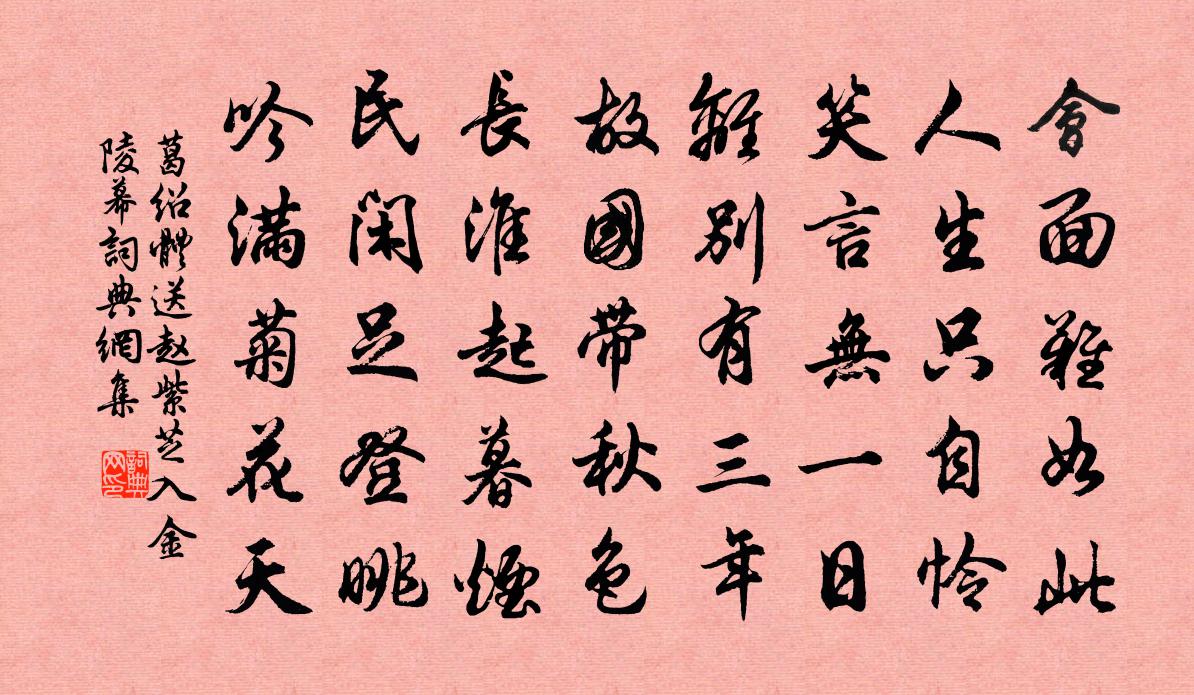 會面難如此
人生只自怜
笑言無一日
離別有三年
故國带秋色
長淮起暮煙
民閑足登眺
吟滿菊花天
葛绍體送赵紫芝入金
陵幕詞典網集
詞典网印